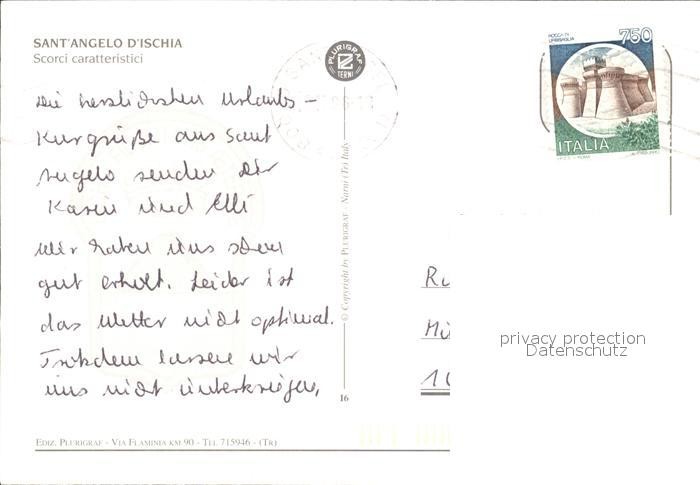 SANT'ANGELO D'ISCHIA
Scorci caratteristici
PLURIGRAF
TERNI
ROCCA DI
URBISAGLIA
750
ITALIA
Die herzlichsten Urlaubs-
Kurgrüße aus Sant
Angelo senden Dir
Karin und Elli
Wir haben uns schon
gut erholt. Leider ist
das Wetter nicht optimal.
Trotzdem lassen wir
uns nicht unterkriegen,
© Copyright by PLURIGRAF - Narni (Tr) Italy
16
Ru
Mü
10
privacy protection
Datenschutz
EDIZ. PLURIGRAF - VIA FLAMINIA KM 90 - TEL 715946 - (TR)